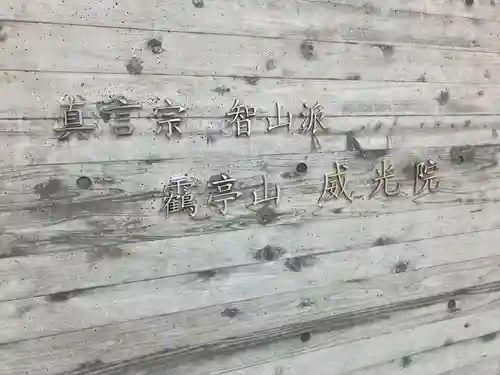 真言宗 智山派
靏亭山 威光院